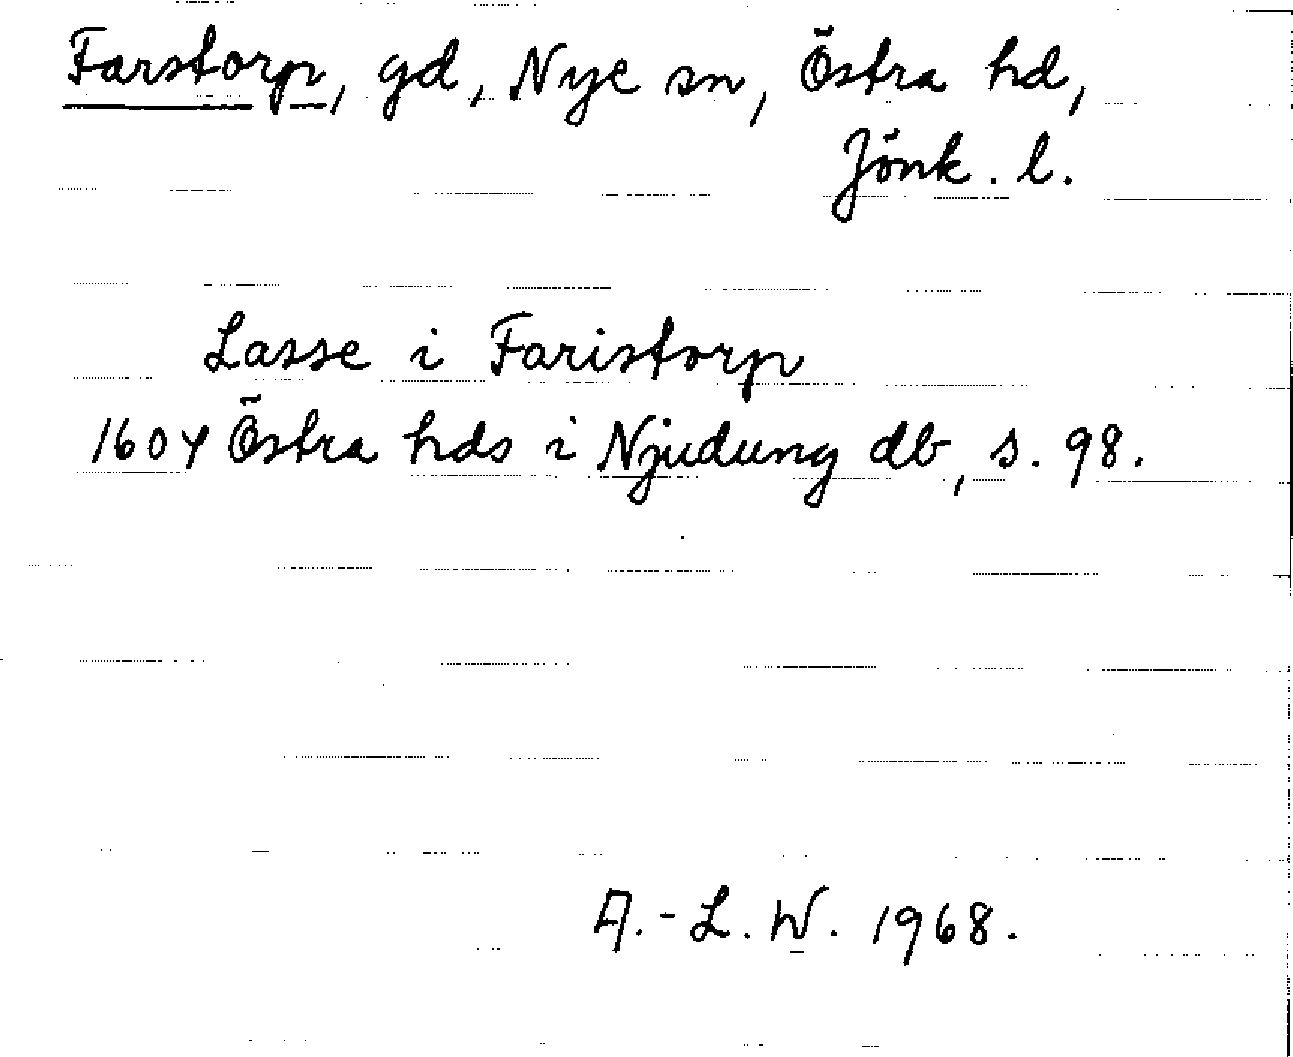 Farstorp, gd, Nye sn, Östra hd,
Jönk. l.
Lasse i Faristorp
1604 Östra hds i Njudung db, s. 98.
A.-L. W. 1968.